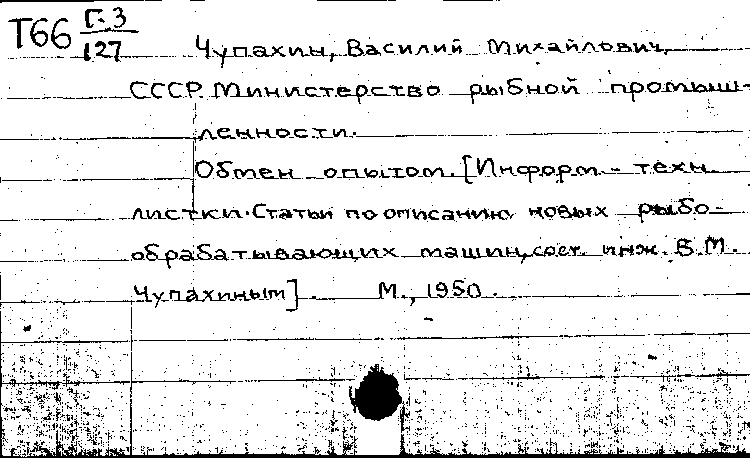 Т66 Г.3
127
Чупахин, Василий Михайлович,
СССР. Министерство рыбной промыш-
ленности.
Обмен опытом. [Информ.-техн.
листки. Статьи по описанию новых рыбо-
обрабатывающих машин, сост. инж. В.М.
Чупахиным]. М., 1950.